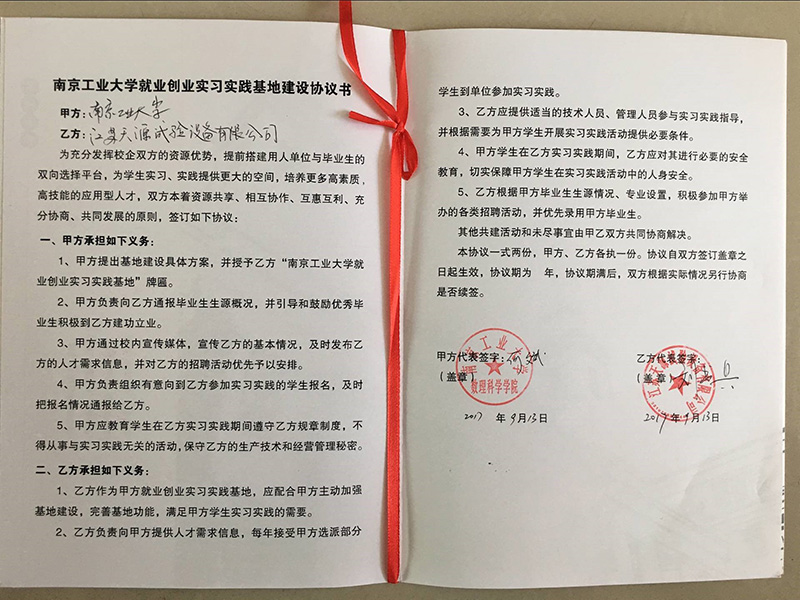 南京工业大学就业创业实习实践基地建设协议书
甲方：南京工业大学
乙方：江苏天源试验设备有限公司
为充分发挥校企双方的资源优势，提前搭建用人单位与毕业生的
双向选择平台，为学生实习、实践提供更大的空间，培养更多高素质、
高技能的应用型人才，双方本着资源共享、相互协作、互惠互利、充
分协商、共同发展的原则，签订如下协议：
一、甲方承担如下义务：
1、甲方提出基地建设具体方案，并授予乙方“南京工业大学就
业创业实习实践基地”牌匾。
2、甲方负责向乙方通报毕业生生源概况，并引导和鼓励优秀毕
业生积极到乙方建功立业。
3、甲方通过校内宣传媒体，宣传乙方的基本情况，及时发布乙
方的人才需求信息，并对乙方的招聘活动优先予以安排。
4、甲方负责组织有意向到乙方参加实习实践的学生报名，及时
把报名情况通报给乙方。
5、甲方应教育学生在乙方实习实践期间遵守乙方规章制度，不
得从事与实习实践无关的活动，保守乙方的生产技术和经营管理秘密。
二、乙方承担如下义务：
1、乙方作为甲方就业创业实习实践基地，应配合甲方主动加强
基地建设，完善基地功能，满足甲方学生实习实践的需要。
2、乙方负责向甲方提供人才需求信息，每年接受甲方选派部分
学生到单位参加实习实践。
3、乙方应提供适当的技术人员、管理人员参与实习实践指导，
并根据需要为甲方学生开展实习实践活动提供必要条件。
4、甲方学生在乙方实习实践期间，乙方应对其进行必要的安全
教育，切实保障甲方学生在实习实践活动中的人身安全。
5、乙方根据甲方毕业生生源情况、专业设置，积极参加甲方举
办的各类招聘活动，并优先录用甲方毕业生。
其他共建活动和未尽事宜由甲乙双方共同协商解决。
本协议一式两份，甲方、乙方各执一份。协议自双方签订盖章之
日起生效，协议期为 年，协议期满后，双方根据实际情况另行协商
是否续签。
甲方代表签字：
（盖章）
南京工业大学
数理科学学院
2017 年 9月13日
乙方代表签字：
（盖章）
2017 年 9月13日